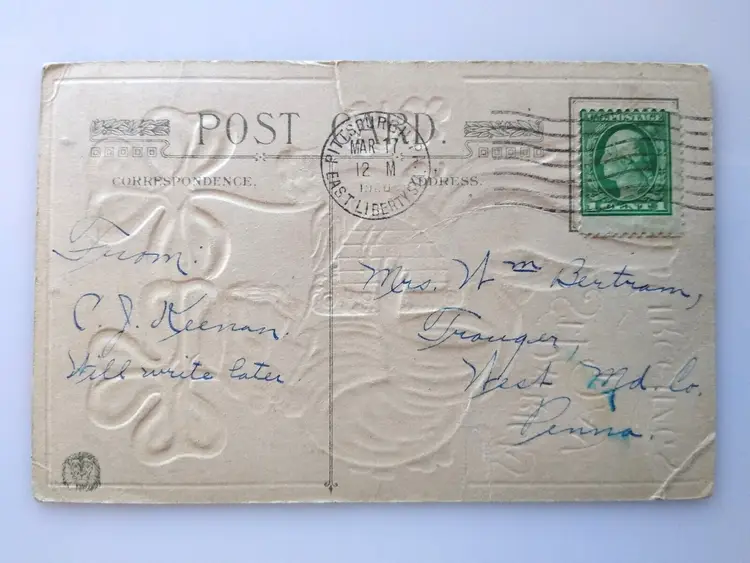 POST CARD.
CORRESPONDENCE.
ADDRESS.
PITTSBURGH
MAR 17
12 M
EAST LIBERTY STA.
POSTAGE
From:
C. J. Keenan.
Will write later
Mrs. Wm Bertram,
Trauger,
West Md. Co.
Penna.